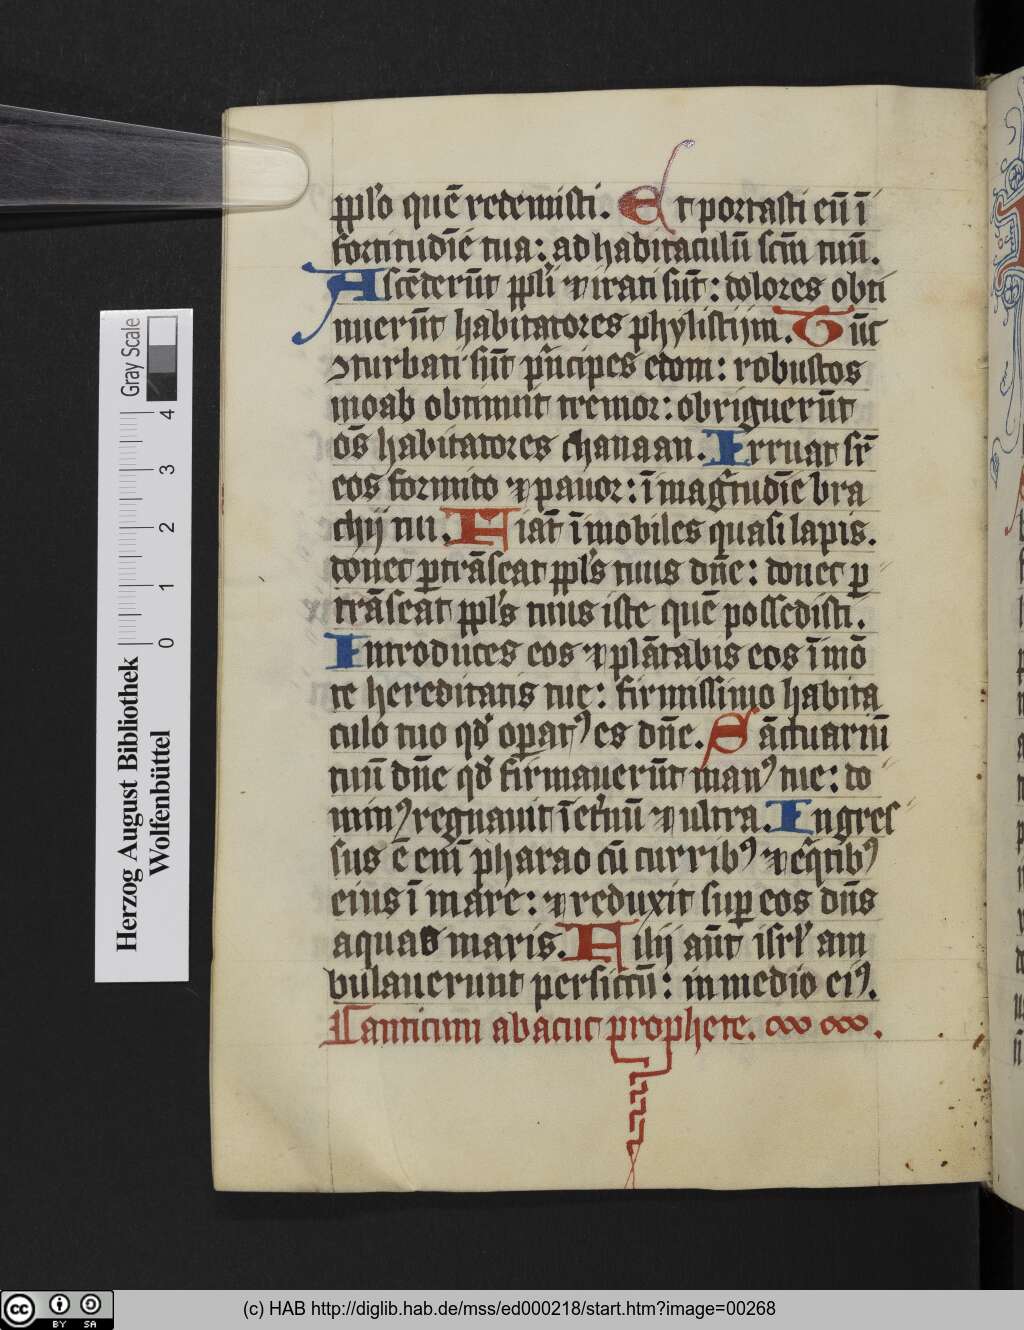 pplo quē redemisti. Et portasti eū ī
fortitudīe tua: ad habitaculū scm̄ tuū.
Ascēderūt ppli ⁊ irati sūt: dolores obti
nuerūt habitatores phylistijm. Tūc
ꝯturbati sūt pncipes edom: robustos
moab obtinuit tremor: obriguerūt
oēs habitatores chanaan. Irruat sr̄
eos formido ⁊ pauor: ī magtudīe bra
chij tui. Fiāt īmobiles quasi lapis.
donec ꝑtrāseat ppls tuus dn̄e: donec ꝑ
trāseat ppls tuus iste quē possedisti.
Introduces eos ⁊ plātabis eos ī mō
te hereditatis tue: firmissimo habita
culo tuo qd̓ oꝑatꝰ es dn̄e. Sāctuariū
tuū dn̄e qd̓ firmauerūt manꝰ tue: do
minꝰ regnauit ī et̓nū ⁊ ultra. Ingres
sus ē em̄ pharao cū curribꝰ ⁊ eq̄tibꝰ
eius ī mare: ⁊ reduxit suꝑ eos dn̄s
aquas maris. Filij aūt isrl̓ am
bulauerunt per siccū: in medio eiꝰ.
Canticum abacuc prophete.
Herzog August Bibliothek
Wolfenbüttel
0 1 2 3 4
Gray Scale
cc BY SA
(c) HAB http://diglib.hab.de/mss/ed000218/start.htm?image=00268